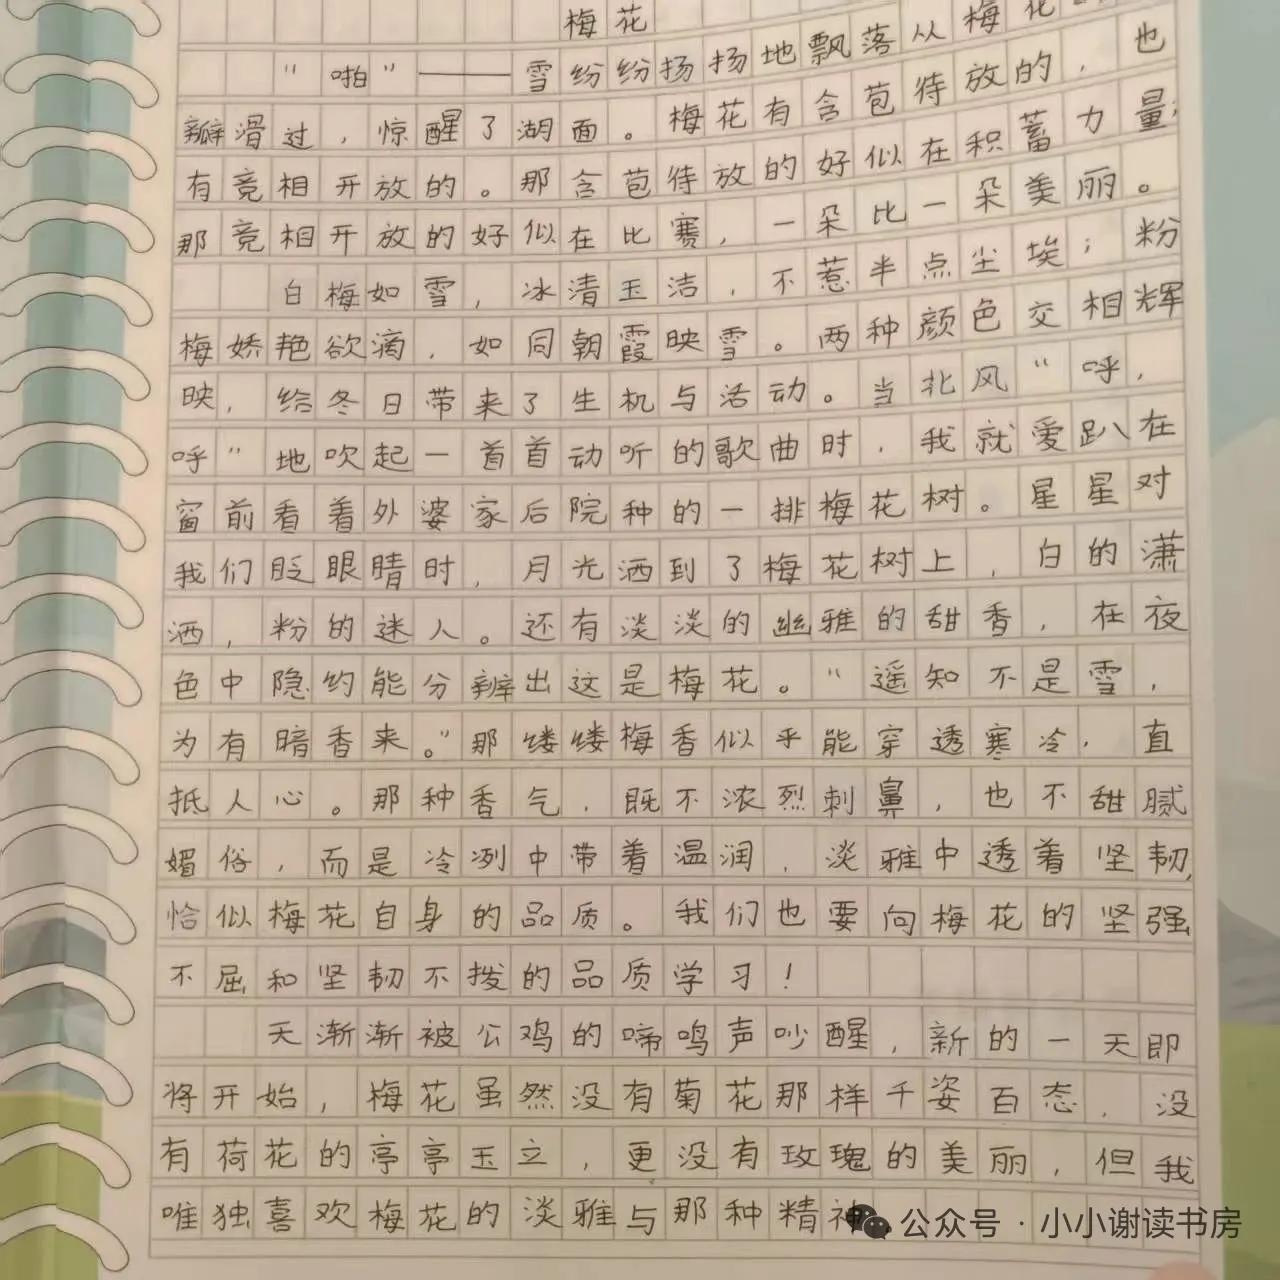 梅花
“啪”——雪纷纷扬扬地飘落从梅花
瓣滑过，惊醒了湖面。梅花有含苞待放的，也
有竞相开放的。那含苞待放的好似在积蓄力量；
那竞相开放的好似在比赛，一朵比一朵美丽。
白梅如雪，冰清玉洁，不惹半点尘埃；粉
梅娇艳欲滴，如同朝霞映雪。两种颜色交相辉
映，给冬日带来了生机与活动。当北风“呼，
呼”地吹起一首首动听的歌曲时，我就爱趴在
窗前看着外婆家后院种的一排梅花树。星星对
我们眨眼睛时，月光洒到了梅花树上，白的潇
洒，粉的迷人。还有淡淡的幽雅的甜香，在夜
色中隐约能分辨出这是梅花。“遥知不是雪，
为有暗香来。”那缕缕梅香似乎能穿透寒冷，直
抵人心。那种香气，既不浓烈刺鼻，也不甜腻
媚俗，而是冷冽中带着温润，淡雅中透着坚韧，
恰似梅花自身的品质。我们也要向梅花的坚强
不屈和坚韧不拨的品质学习！
天渐渐被公鸡的啼鸣声吵醒，新的一天即
将开始，梅花虽然没有菊花那样千姿百态，没
有荷花的亭亭玉立，更没有玫瑰的美丽，但我
唯独喜欢梅花的淡雅与那种精神
公众号·小小谢读书房